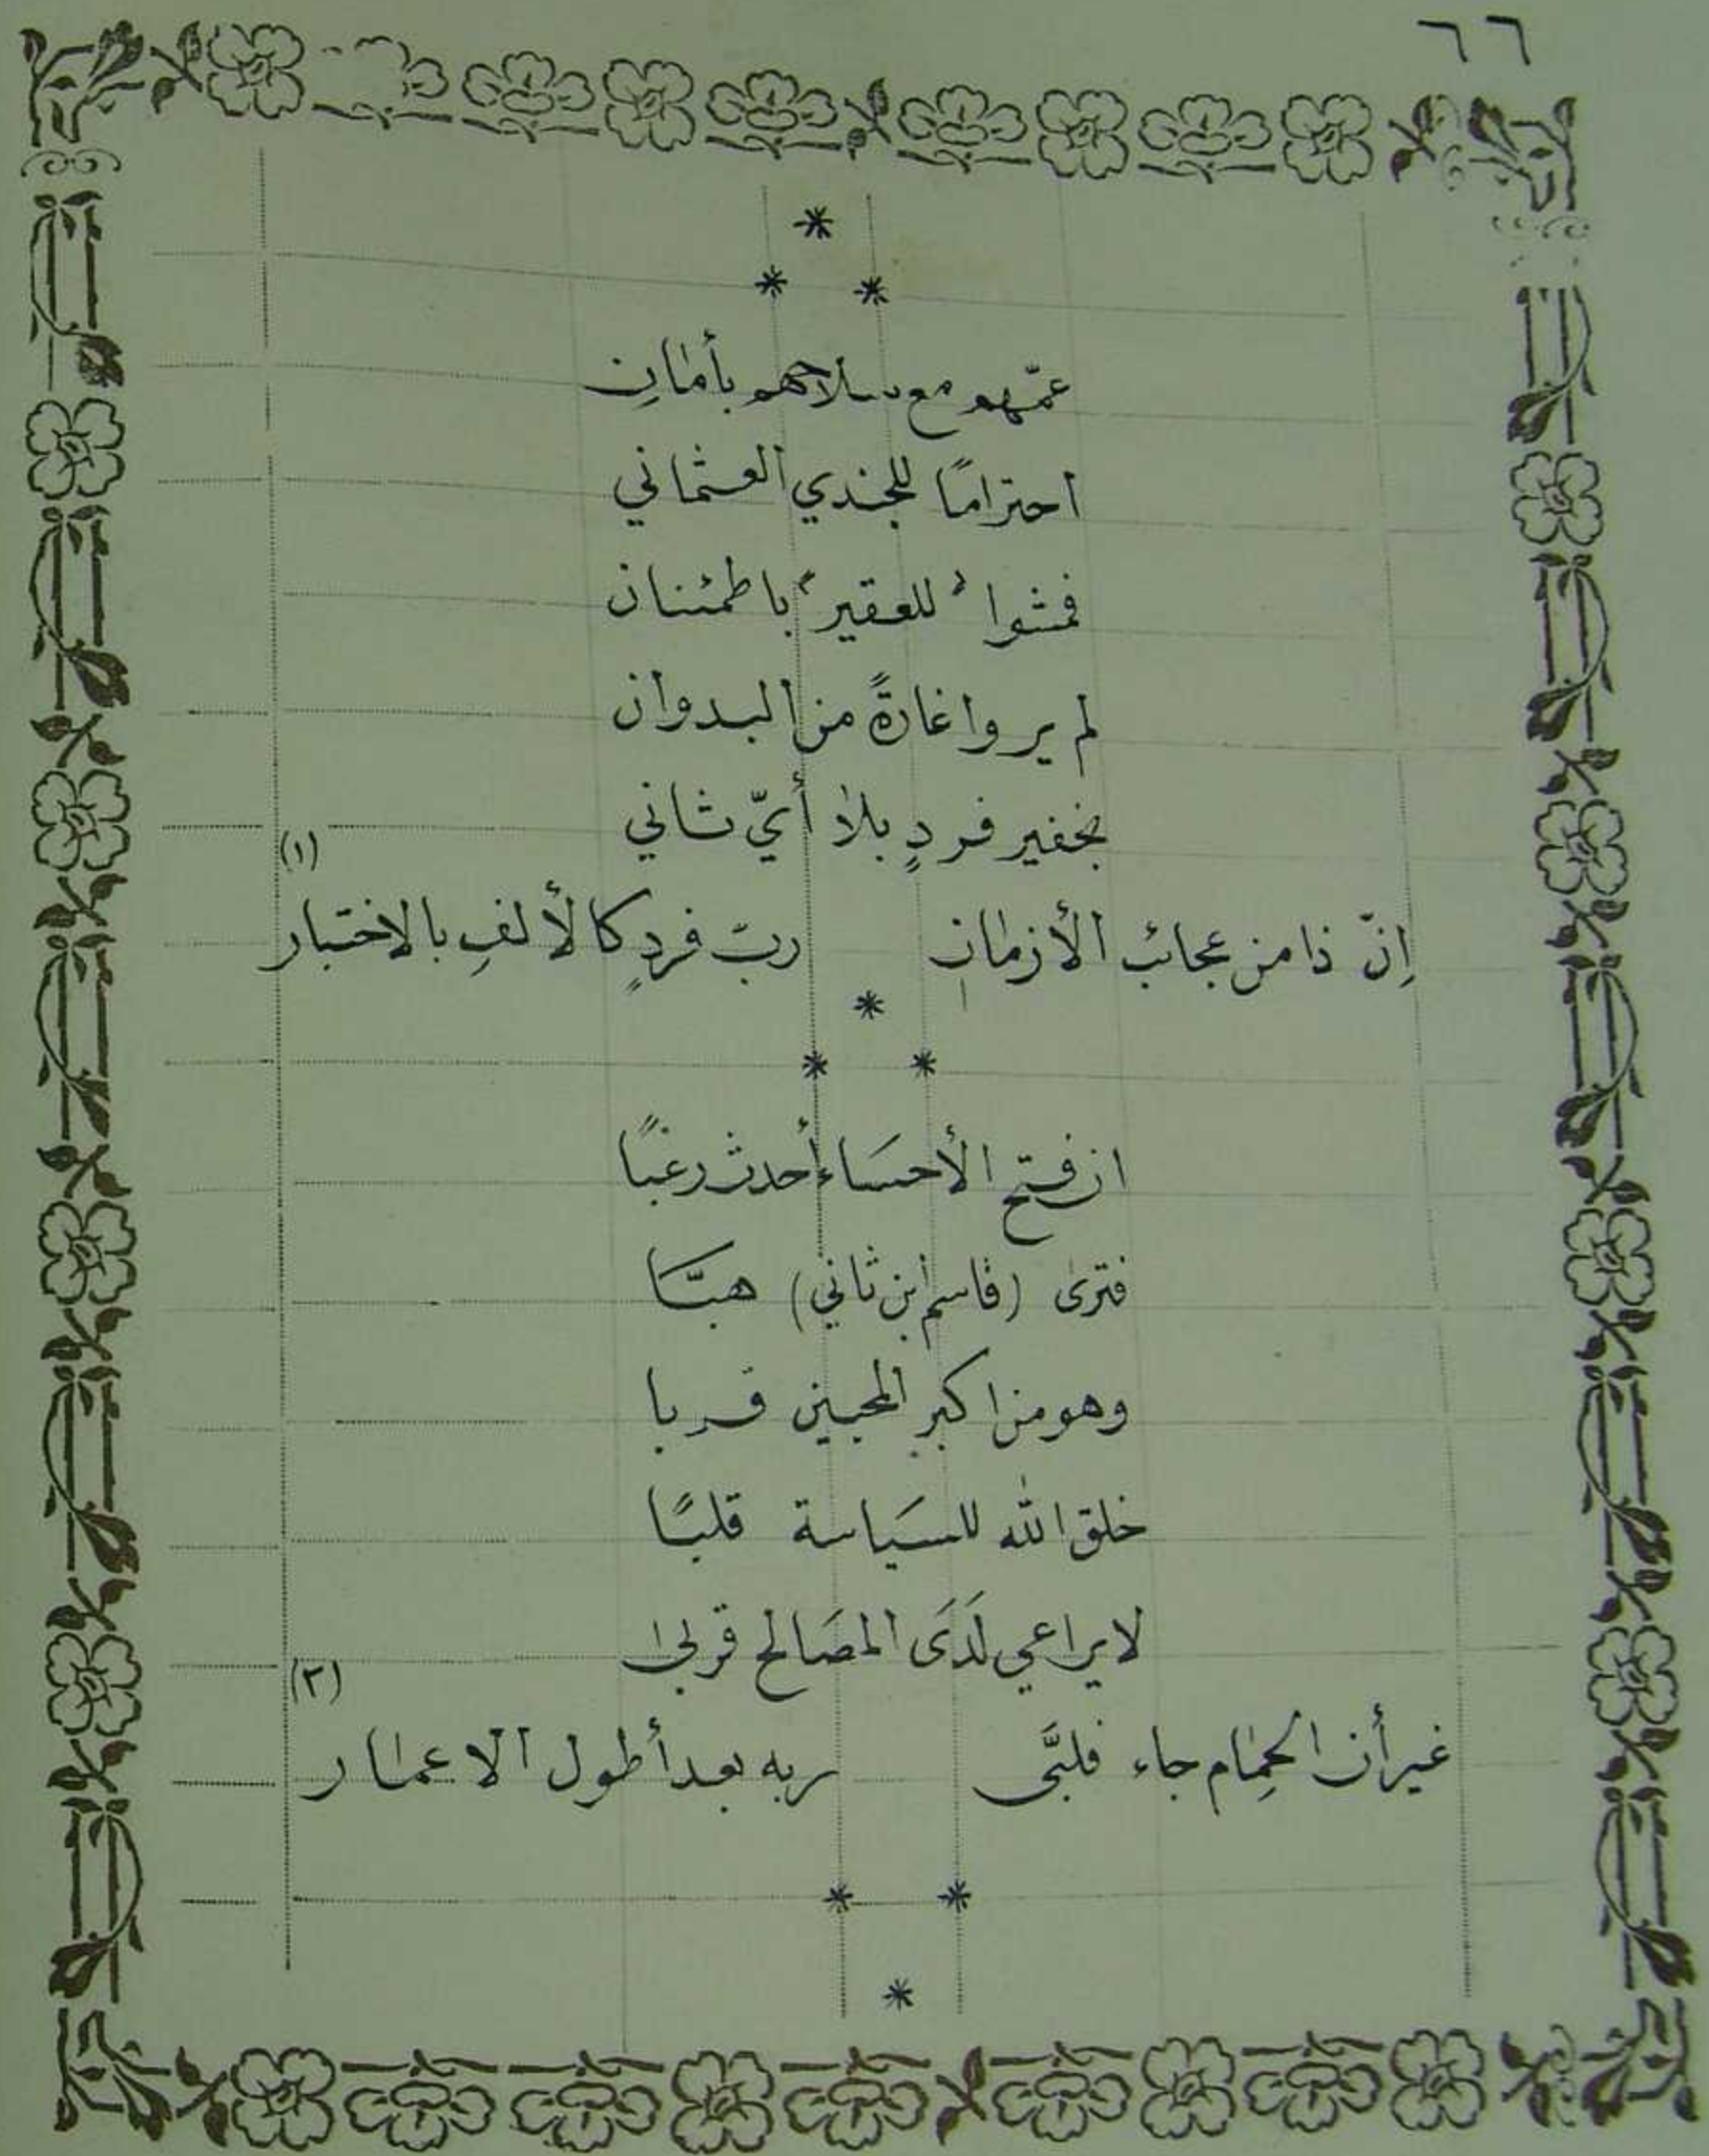 ٦٦
*
* *
عمّهم مع سلاحهم بأمانِ
احترامًا للجندي العثماني
فمشوا "للعقير" باطمئنان
لم يروا غارةً من البدوان
بخفير فردٍ بلا أيّ ثاني
إنّ ذا من عجائب الأزمان ربّ فردٍ كالألفِ بالاختبار (١)
*
* *
ان فتح الأحساء أحدث رعبًا
فترى (قاسم ابن ثاني) هبّا
وهو من اكبر المحبين قربا
خلق الله للسياسة قلبًا
لا يراعي لَدَى المصَالح قربى
غير أن الحِمام جاء فلبَّى ربه بعد أطول الاعمار (٢)
* *
*